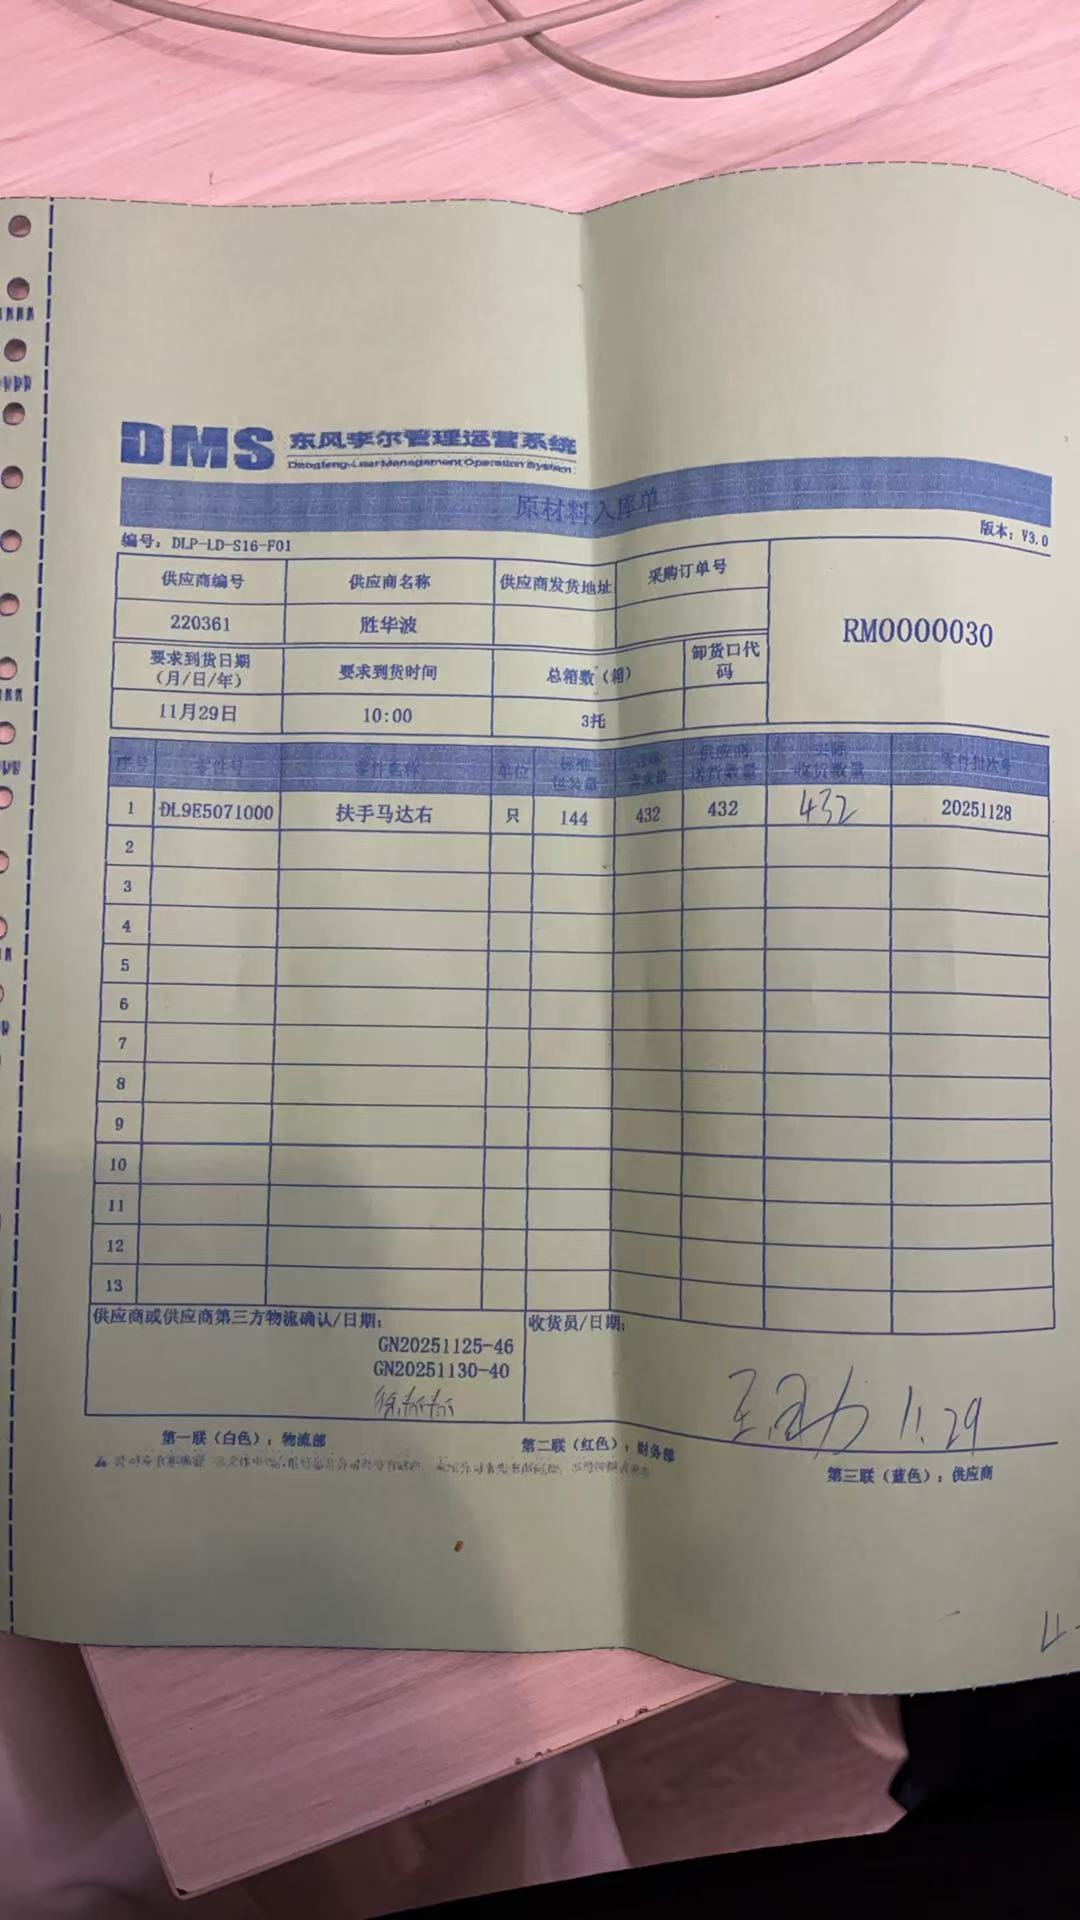 DMS 东风李尔管理运营系统
Dongfeng-Lear Management Operation System
原材料入库单
编号：DLP-LD-S16-F01 版本：V3.0
供应商编号 供应商名称 供应商发货地址 采购订单号
220361 胜华波 RM0000030
要求到货日期（月/日/年） 要求到货时间 总箱数（箱） 卸货口代码
11月29日 10:00 3托
序号 零件号 零件名称 单位 标准包装量 需求量 供应商送货数量 实际收货数量 零件批次号
1 DL9E5071000 扶手马达右 只 144 432 432 432 20251128
2
3
4
5
6
7
8
9
10
11
12
13
供应商或供应商第三方物流确认/日期： 收货员/日期：
GN20251125-46
GN20251130-40
11.29
第一联（白色）：物流部 第二联（红色）：财务部 第三联（蓝色）：供应商